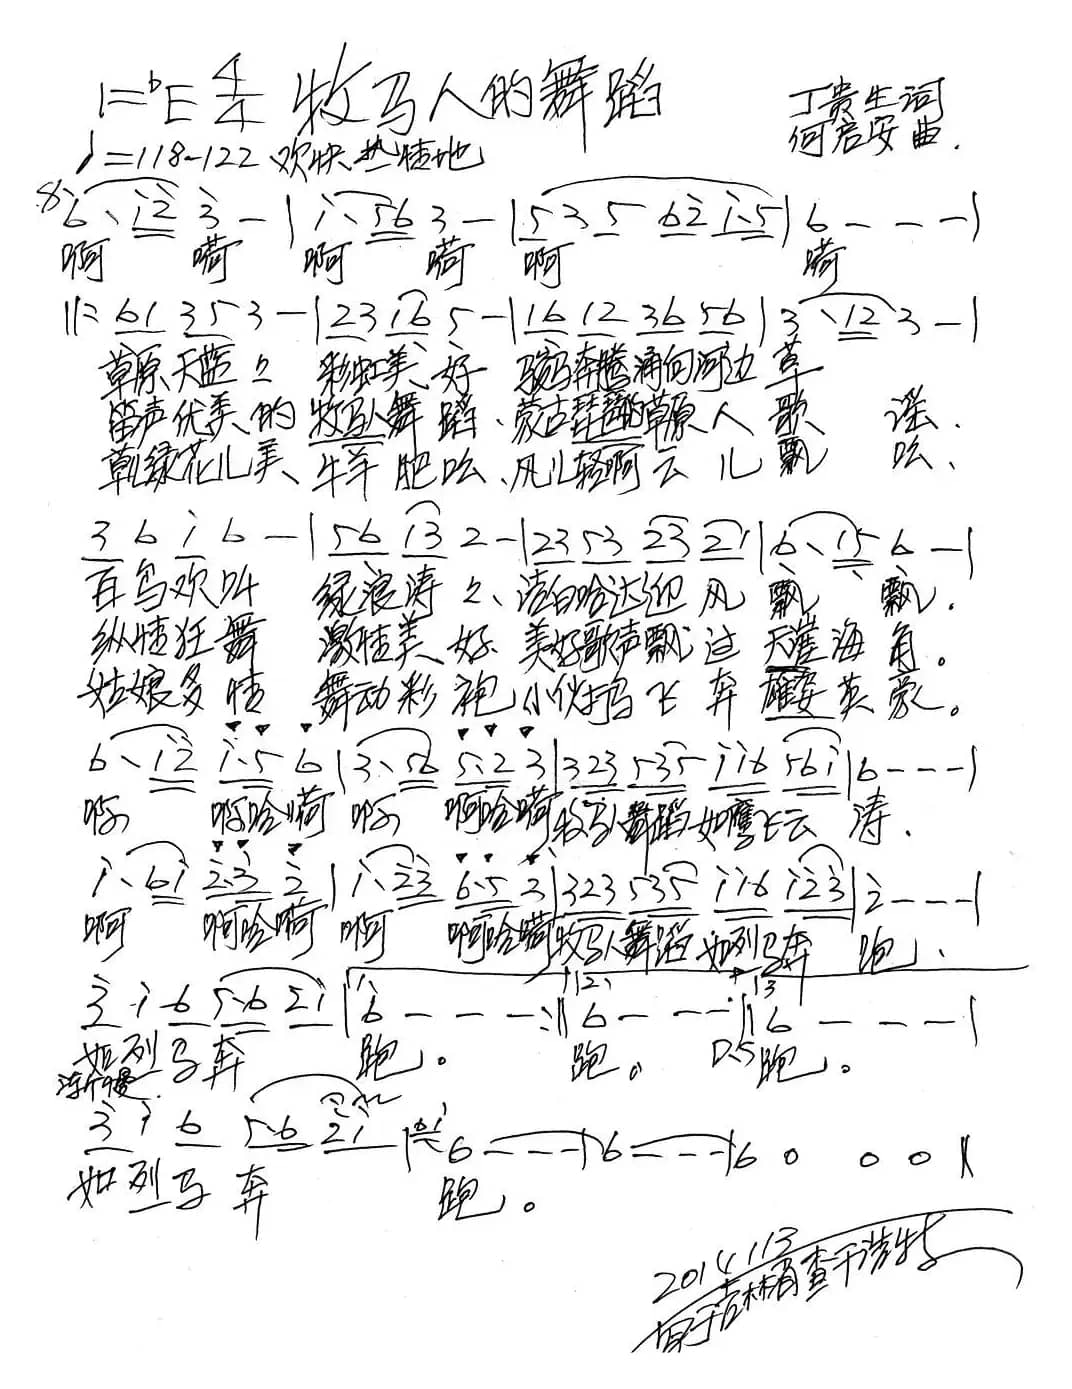 1=♭E 4/4 牧马人的舞蹈 丁贵生词
何启安曲.
♩=118-122 欢快热情地
6· 12 3 - | 1· 56 3 - | 53 5 62 1·5 | 6 - - - |
啊 嗬 啊 嗬 啊 嗬
||: 61 35 3 - | 23 16 5 - | 16 12 36 56 | 3· 12 3 - |
草原天蓝蓝 彩虹美、好 骏马奔腾涌向河边草
笛声优美的牧马人舞蹈、蒙古琵琶的草原人歌谣.
草儿绿花儿美、牛羊肥吆、风儿轻啊云儿飘吆、
3 6 1 6 - | 56 13 2 - | 23 53 23 21 | 6· 15 6 - |
百鸟欢叫 绿浪涛涛、洁白哈达迎风飘、飘.
纵情狂舞 激情美好 美好歌声飘过天涯海角。
姑娘多情 舞动彩袍 小伙打马飞奔雄姿英豪。
6· 12 1·5 6 | 3· 56 5·2 3 | 323 535 116 561 | 6 - - - |
啊 啊哈嗬 啊 啊哈嗬 牧马人舞蹈如鹰飞云涛.
1· 61 2·3 2 | 1· 23 6·5 3 | 323 535 116 123 | 2 - - - |
啊 啊哈嗬 啊 啊哈嗬 牧马人舞蹈 如列马奔跑.
3 1 6 5·6 21 | 1 6 - - - :|| 2 6 - - - || 3 6 - - - |
如列马奔 跑。 跑。 D.S 跑。
渐慢
3 1 6 5·6 21 | 61 6 - - - | 6 - - - | 6 0 0 0 ||
如列马奔 跑。
2014.1.13
写于吉林省查干浩特